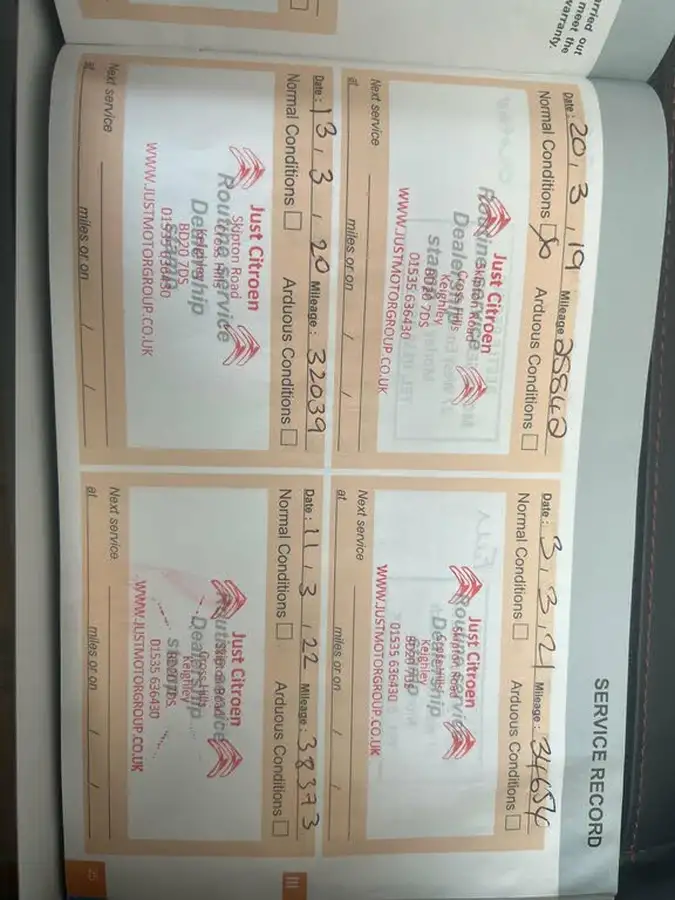 arried
out
meet the
warranty.
SERVICE RECORD
Date: 20 . 3 . 19 Mileage: 25842
Normal Conditions Arduous Conditions
Routine service
Dealership
stamp
Just Citroen
Skipton Road
Cross Hills
Keighley
BD20 7DS
01535 636430
WWW.JUSTMOTORGROUP.CO.UK
Next service
at miles or on / /
Date: 3 . 3 . 21 Mileage: 34654
Normal Conditions Arduous Conditions
Routine service
Dealership
stamp
Just Citroen
Skipton Road
Cross Hills
Keighley
BD20 7DS
01535 636430
WWW.JUSTMOTORGROUP.CO.UK
Next service
at miles or on / /
Date: 13 . 3 . 20 Mileage: 32039
Normal Conditions Arduous Conditions
Routine service
Dealership
stamp
Just Citroen
Skipton Road
Cross Hills
Keighley
BD20 7DS
01535 636430
WWW.JUSTMOTORGROUP.CO.UK
Next service
at miles or on / /
Date: 11 . 3 . 22 Mileage: 38373
Normal Conditions Arduous Conditions
Routine service
Dealership
stamp
Just Citroen
Skipton Road
Cross Hills
Keighley
BD20 7DS
01535 636430
WWW.JUSTMOTORGROUP.CO.UK
Next service
at miles or on / /
III